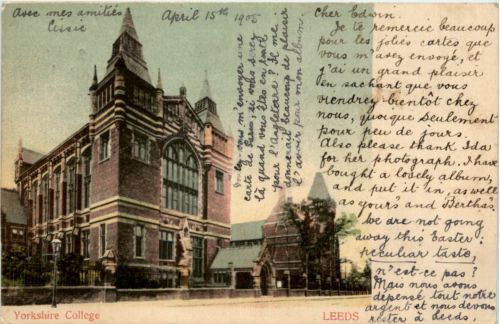 Avec mes amitiés
Cissie
April 15th 1906
Cher Edwin.
Je te remercie beaucoup
pour les jolies cartes que
vous m'avez envoyé, et
j'ai un grand plaisir
en sachant que vous
viendrez bientôt chez
nous, quoique seulement
pour peu de jours.
Also please thank Ida
for her photograph. I have
bought a lovely album,
and put it in, as well
as yours and Bertha's
We are not going
away this Easter:
peculiar taste,
n'est-ce pas?
Mais nous avons
dépensé tout notre
argent et nous devons
rester à Leeds.
vous m'envoyer une
carte de Paris, si vous
là quand vous êtes en route
pour l'Angleterre? Il me
donnerait beaucoup de plaisir
d'avoir pour mon album.
Yorkshire College
LEEDS